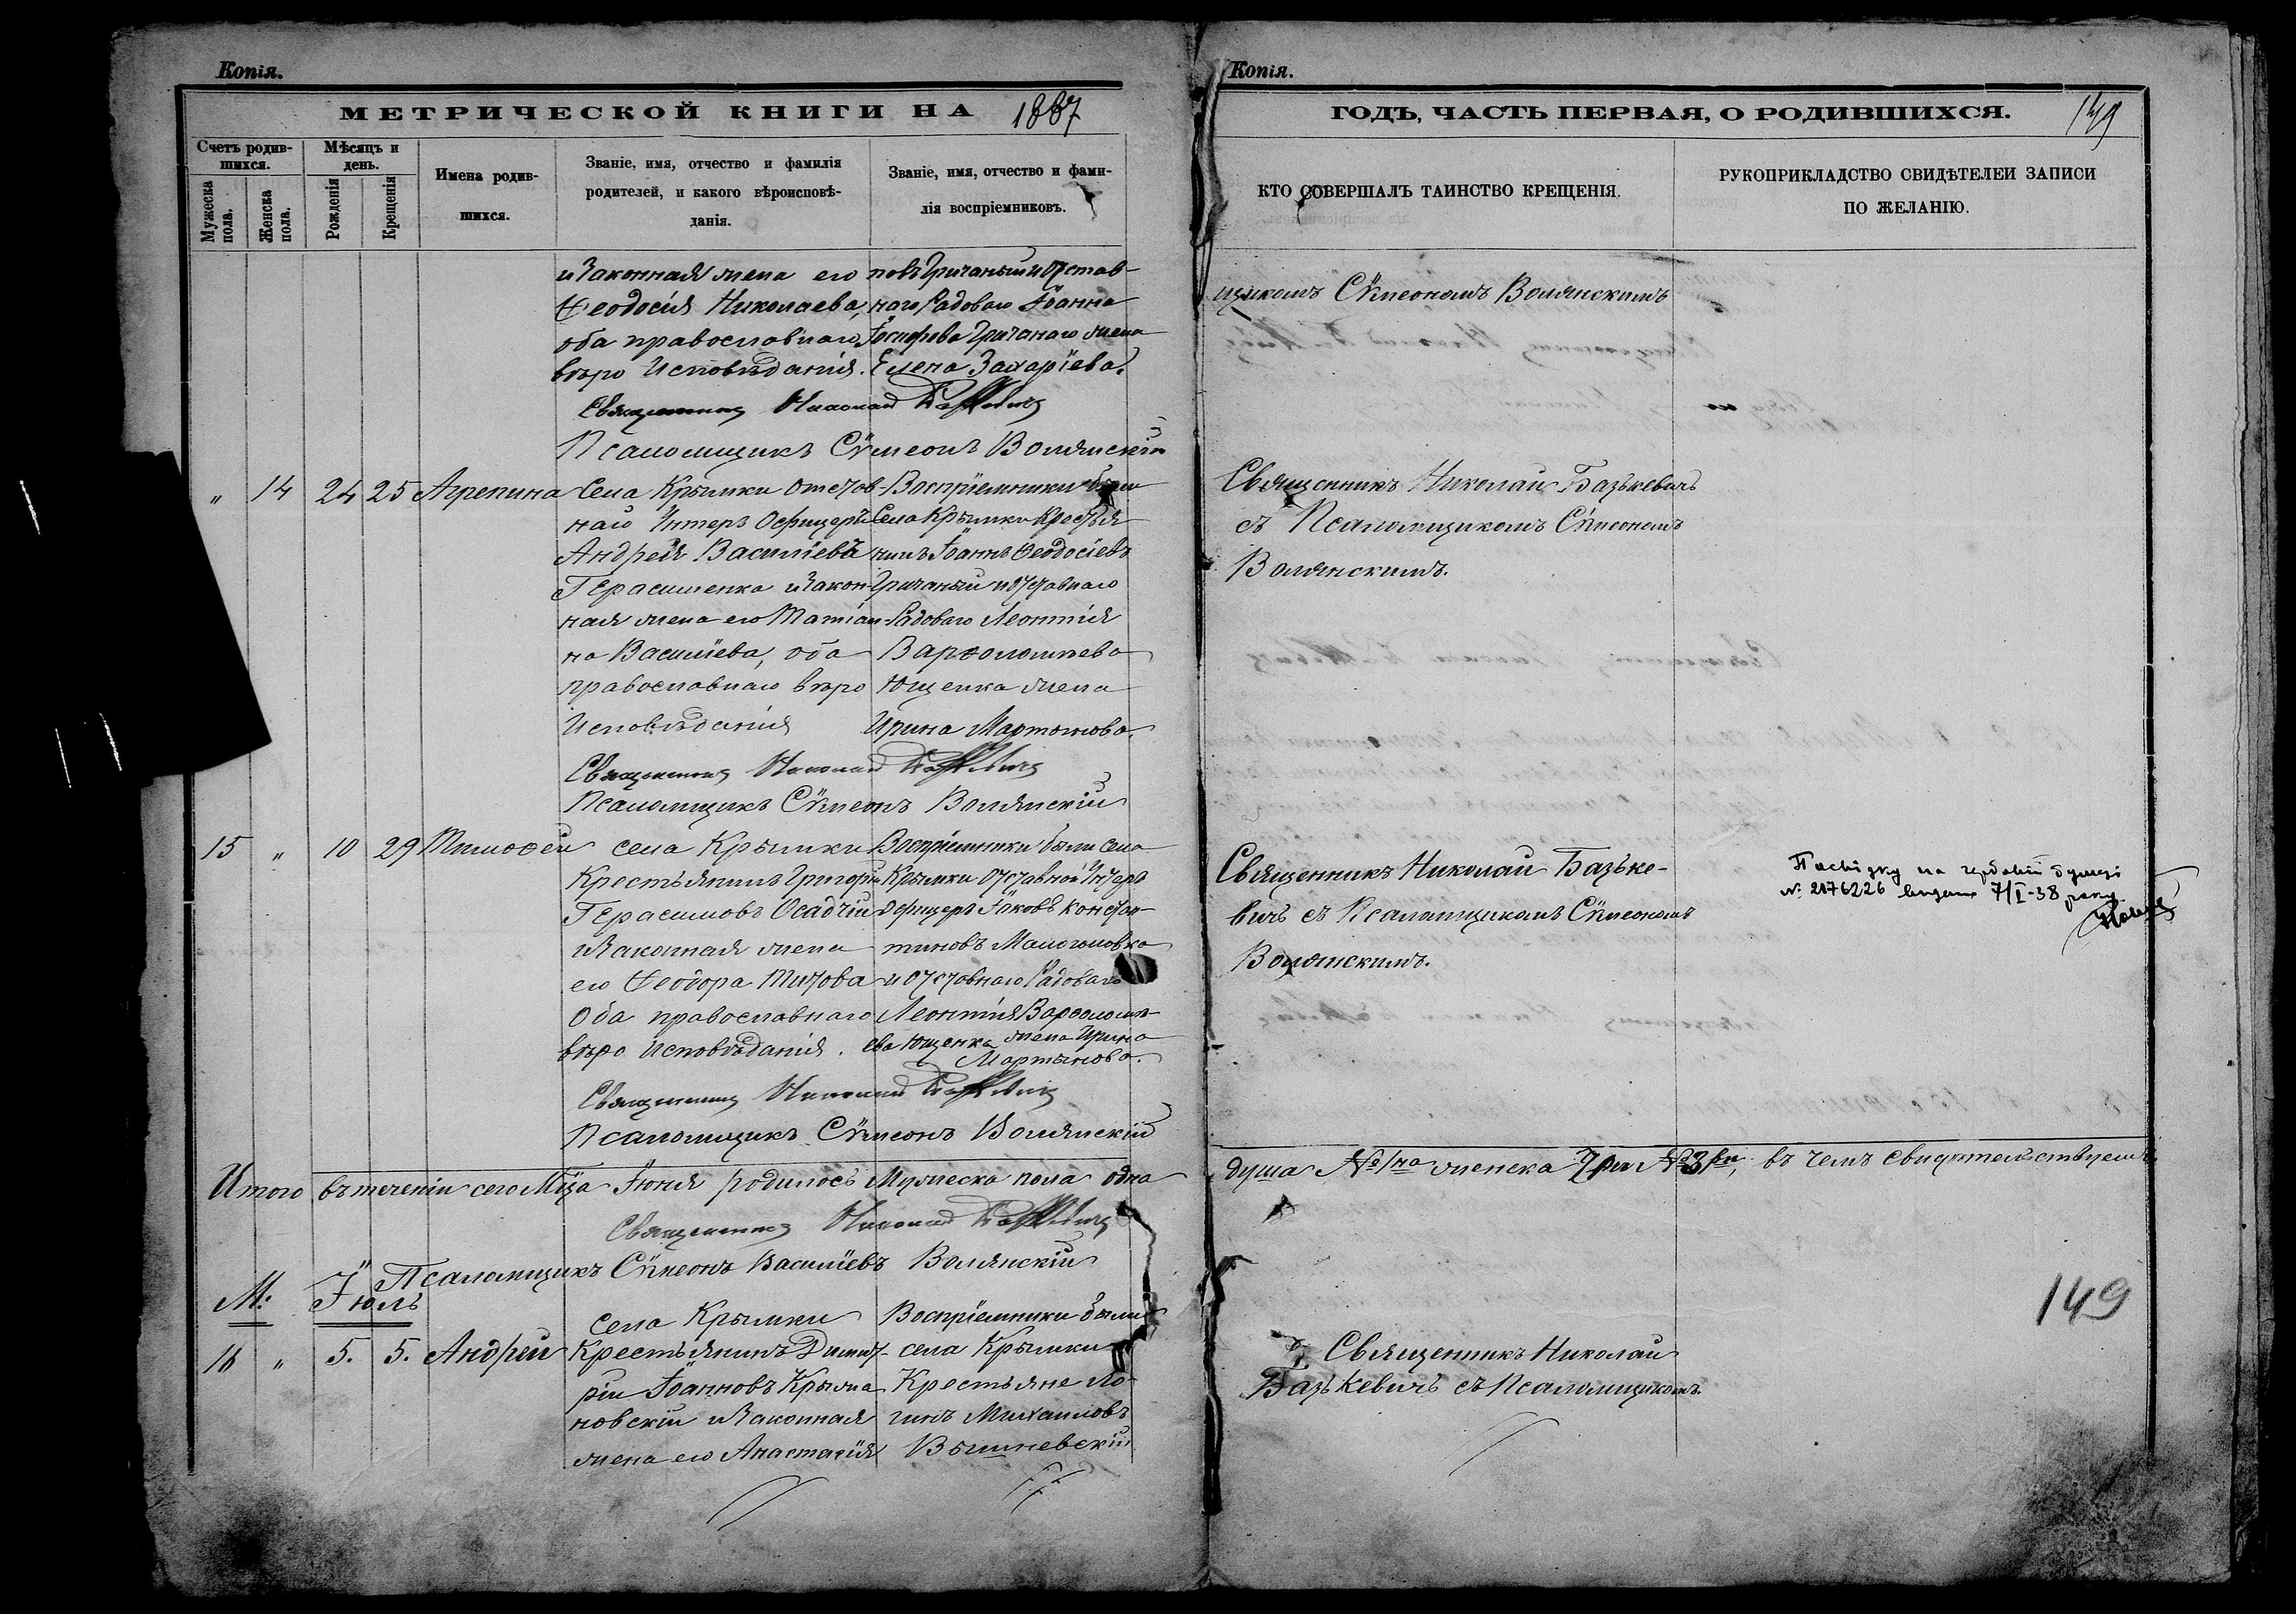 Копія.
МЕТРИЧЕСКОЙ КНИГИ НА 1887
Счетъ родив-
шихся.
Мѣсяцъ и
день.
Мужеска
пола.
Женска
пола.
Рожденія
Крещенія
Имена родив-
шихся.
Званіе, имя, отчество и фамилія
родителей, и какого вѣроисповѣ-
данія.
Званіе, имя, отчество и фами-
лія воспріемниковъ.
и Законная жена его
Ѳеодосія Николаева,
оба православнаго
вѣро Исповѣданія.
новъ Гричаный и Отстав-
наго Рядоваго Іоанна
Іосифова Гричанаго жена
Елена Захаріева.
Священникъ Николай Базькевичъ
Псаломщикъ Сѷмеонъ Волянскій
„ 14 24 25 Агрепина
Села Крымки Отстав-
наго Унтеръ Офицеръ
Андрей Василіевъ
Герасименко и Закон-
ная жена его Татіан-
на Василіева, оба
православнаго вѣро
Исповѣданія
Воспріемники были
Села Крымки Крестья
нинъ Іоаннъ Ѳеодосіевъ
Гричаный и Отставнаго
Рядоваго Леонтія
Варѳоломѣева
Ющенка жена
Ирина Мартынова.
Священникъ Николай Базькевичъ
Псаломщикъ Сѷмеонъ Волянскій
15 „ 10 29 Тимоѳей
села Крымки
Крестьянинъ Григорій
Герасимовъ Осадчій
и Законная жена
его Ѳеодора Титова
Оба православнаго
вѣро Исповѣданія.
Воспріемники были села
Крымки Отставной Унтеръ
Офицеръ Іаковъ Констан-
тиновъ Малоголовка
и Отставнаго Рядоваго
Леонтія Варѳоломѣ-
ева Ющенка жена Ирина
Мартынова.
Священникъ Николай Базькевичъ
Псаломщикъ Сѷмеонъ Волянскій
Итого въ теченіи сего Мца Іюня родилось Мужеска пола одна
Священникъ Николай Базькевичъ
Псаломщикъ Сѷмеонъ Василіевъ Волянскій
М: Іюль
16 „ 5. 5. Андрей
села Крымки
Крестьянинъ Димит-
рій Іоанновъ Крыжа
новскій и Законная
жена его Анастасія
Воспріемники были
села Крымки
Крестьяне Ло-
гинъ Михаиловъ
Вышневскій
Копія.
ГОДЪ, ЧАСТЬ ПЕРВАЯ, О РОДИВШИХСЯ.
149
КТО СОВЕРШАЛЪ ТАИНСТВО КРЕЩЕНІЯ.
РУКОПРИКЛАДСТВО СВИДѢТЕЛЕЙ ЗАПИСИ
ПО ЖЕЛАНІЮ.
щикомъ Сѷмеономъ Волянскимъ
Священникъ Николай Базькевичъ
съ Псаломщикомъ Сѷмеономъ
Волянскимъ.
Священникъ Николай Базьке-
вичъ съ Псаломщикомъ Сѷмеономъ
Волянскимъ.
Посвідку на гербовій бумазі
№ 2176226 видано 7/I-38 року
душа № 1на женска три № 3ри, въ чемъ свидѣтельствуемъ
149
Священникъ Николай
Базькевичъ съ Псаломщикомъ